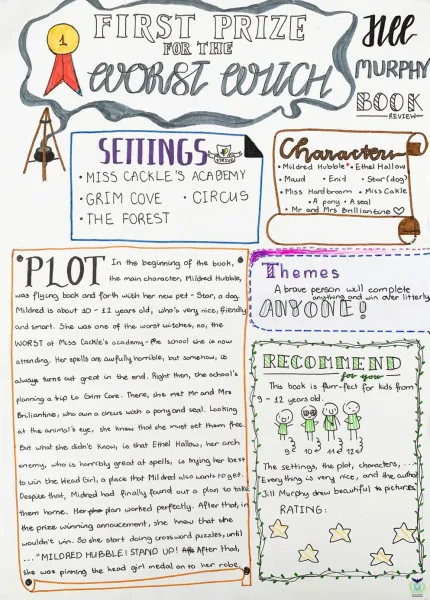 1
FIRST PRIZE
FOR THE
WORST WITCH
Jill
MURPHY
BOOK
REVIEW
SETTINGS
• MISS CACKLE'S ACADEMY
• GRIM COVE • CIRCUS
• THE FOREST
Characters
• Mildred Hubble • Ethel Hallow
• Maud • Enid • Star (dog)
• Miss Hardbroom • Miss Cakle
• A pony • A seal
• Mr and Mrs Brilliantine
PLOT
In the beginning of the book,
the main character, Mildred Hubble,
was flying back and forth with her new pet - Star, a dog.
Mildred is about 10 - 12 years old, who's very nice, friendly
and smart. She was one of the worst witches, no, the
WORST at Miss Cackle's academy - the school she is now
attending. Her spells are awfully horrible, but somehow, it
always turns out great in the end. Right then, the school's
planning a trip to Grim Cove. There, she met Mr and Mrs
Brilliantine, who own a circus with a pony and seal. Looking
at the animal's eye, she knew that she must set them free.
But what she didn't know, is that Ethel Hallow, her arch
enemy, who is horribly great at spells, is trying her best
to win the Head Girl, a place that Mildred also wants to get.
Despite that, Mildred had finally found out a plan to take
them home. Her plan worked perfectly. After that, in
the prize winning annoucement, she knew that she
wouldn't win. So she start doing crossword puzzles, until
... "MILDRED HUBBLE! STAND UP! After that,
she was pinning the head girl medal on to her robe.
Themes
A brave person will complete
anything and win over litterly
ANYONE!
RECOMMEND
for you
This book is purr-fect for kids from
9 - 12 years old.
9 10 11 12
The settings, the plot, characters, ...
Everything is very nice, and the author
Jill Murphy drew beautiful pictures.
RATING: